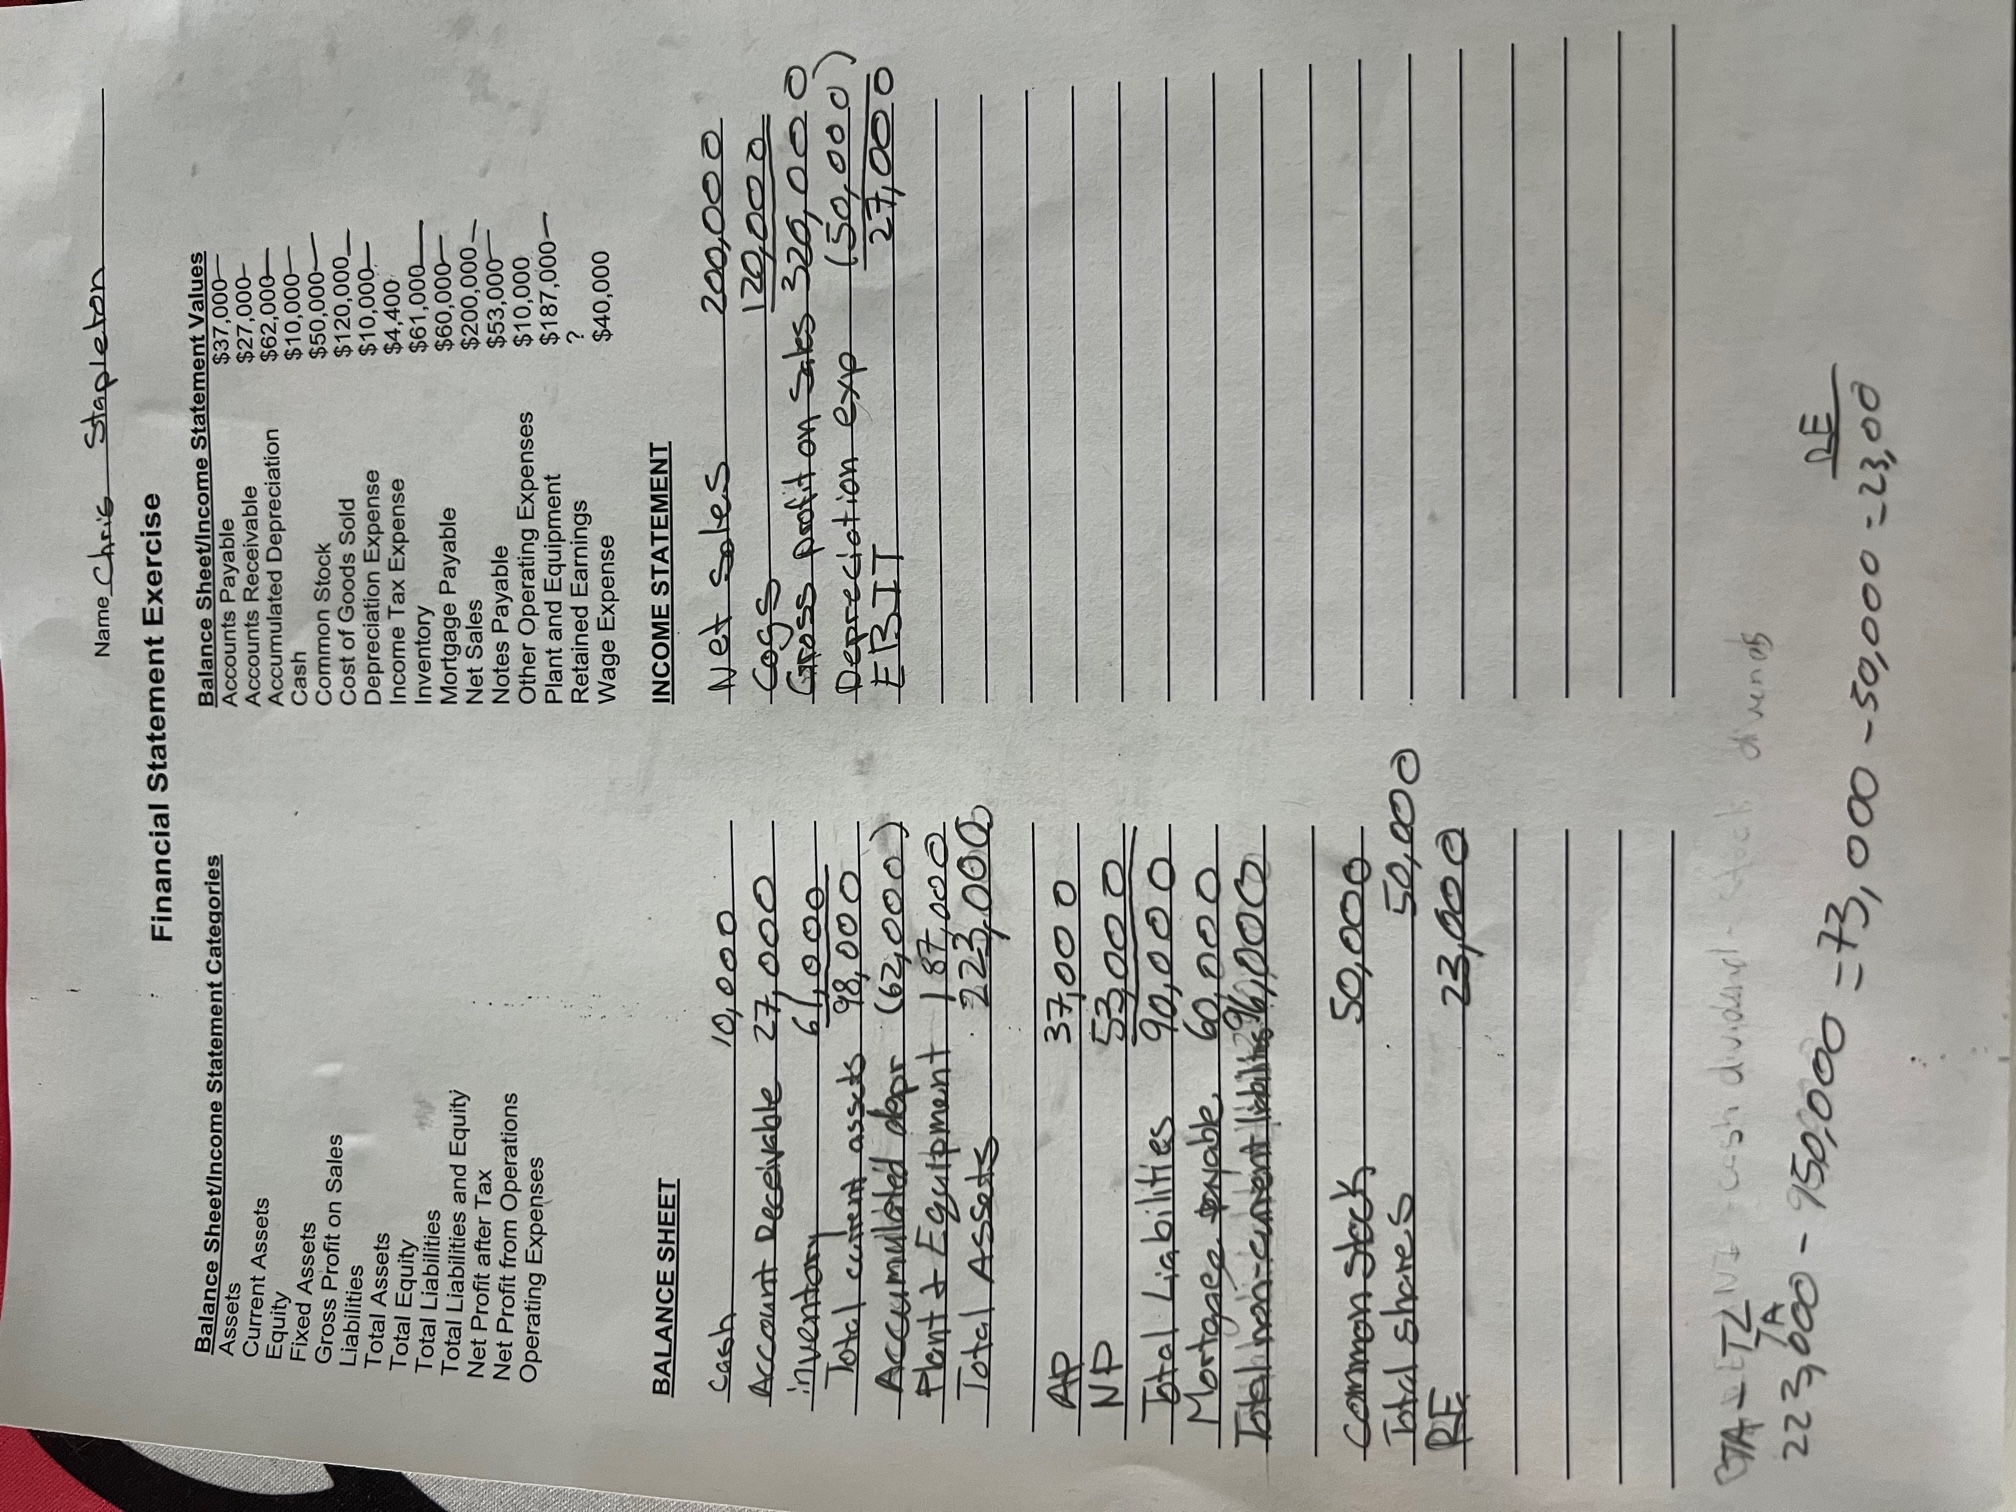 Name Chris Stapleton
Financial Statement Exercise
Balance Sheet/Income Statement Categories
Assets
Current Assets
Equity
Fixed Assets
Gross Profit on Sales
Liabilities
Total Assets
Total Equity
Total Liabilities
Total Liabilities and Equity
Net Profit after Tax
Net Profit from Operations
Operating Expenses
Balance Sheet/Income Statement Values
Accounts Payable $37,000
Accounts Receivable $27,000
Accumulated Depreciation $62,000
Cash $10,000
Common Stock $50,000
Cost of Goods Sold $120,000
Depreciation Expense $10,000
Income Tax Expense $4,400
Inventory $61,000
Mortgage Payable $60,000
Net Sales $200,000
Notes Payable $53,000
Other Operating Expenses $10,000
Plant and Equipment $187,000
Retained Earnings ?
Wage Expense $40,000
BALANCE SHEET
Cash 10,000
Account Receivable 27,000
inventory 61,000
Total current assets 98,000
Accumulated depr (62,000)
Plant + Equipment 187,000
Total Assets 223,000
AP 37,000
NP 53,000
Total Liabilities 90,000
Mortgage payable 60,000
Total non-current liabilities
Common Stock 50,000
Total shares 50,000
RE 23,000
INCOME STATEMENT
Net Sales 200,000
Cogs 120,000
Gross profit on Sales 320,000
Depreciation exp (50,000)
EBIT 27,000
cash dividend
TA
223,000 - 150,000 = 73,000 - 50,000 = 23,00
RE